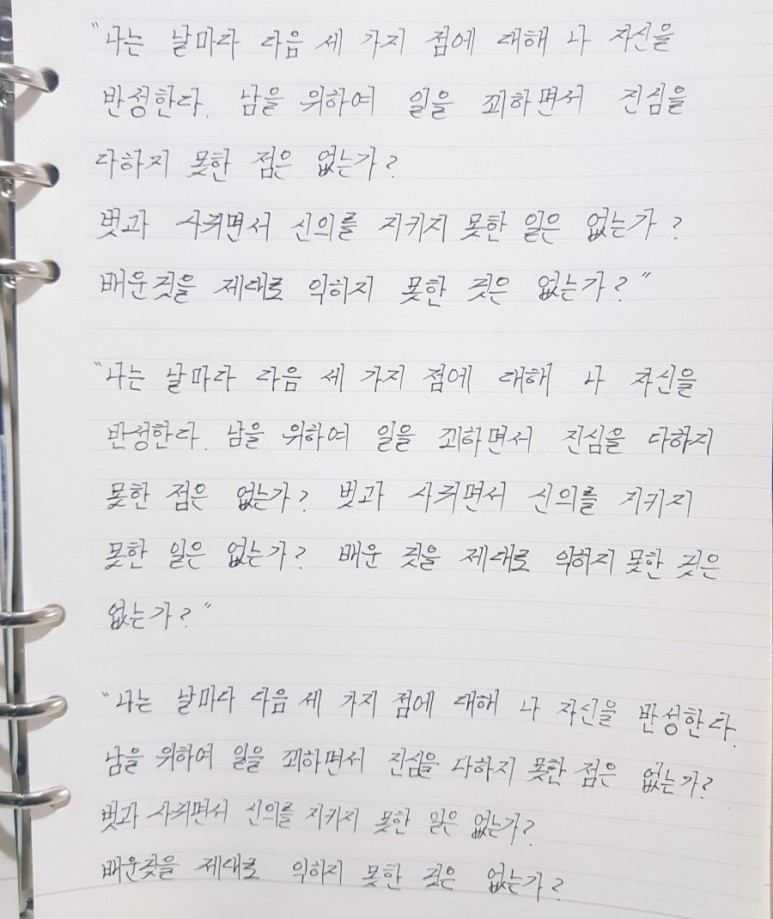 "나는 날마다 다음 세 가지 점에 대해 나 자신을
반성한다. 남을 위하여 일을 꾀하면서 진심을
다하지 못한 점은 없는가?
벗과 사귀면서 신의를 지키지 못한 일은 없는가?
배운것을 제대로 익히지 못한 것은 없는가?"
"나는 날마다 다음 세 가지 점에 대해 나 자신을
반성한다. 남을 위하여 일을 꾀하면서 진심을 다하지
못한 점은 없는가? 벗과 사귀면서 신의를 지키지
못한 일은 없는가? 배운 것을 제대로 익히지 못한 것은
없는가?"
"나는 날마다 다음 세 가지 점에 대해 나 자신을 반성한다.
남을 위하여 일을 꾀하면서 진심을 다하지 못한 점은 없는가?
벗과 사귀면서 신의를 지키지 못한 일은 없는가?
배운것을 제대로 익히지 못한 것은 없는가?